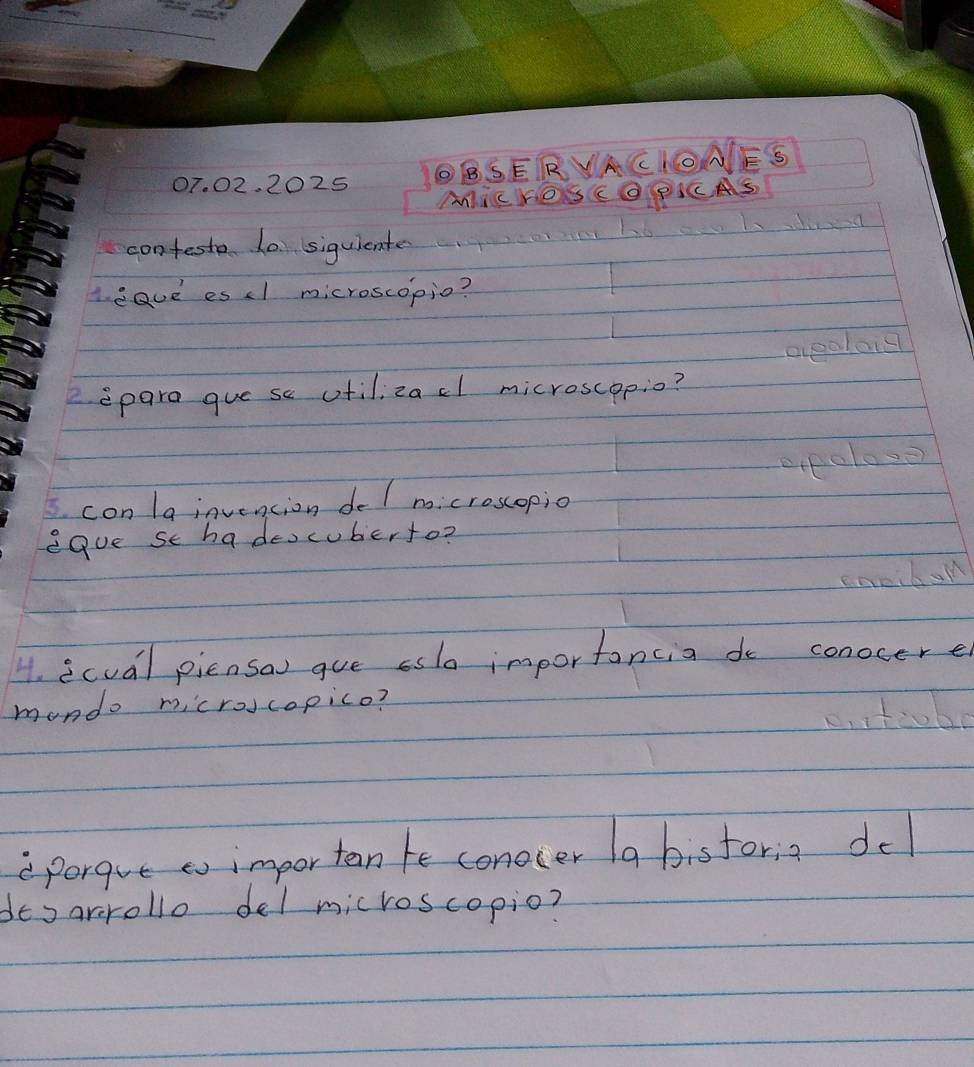 07.02.2025
OBSERVACIONES
MicroscopicAs
contesta lo siguiente
1. ¿Qué es el microscópio?
2. ¿para que se utiliza el microscopio?
3. con la invencion del microscopio
¿Que se ha descubierto?
4. ¿cuál piensas que es la importancia de conocer el
mundo microscopico?
¿Porque es importante conocer la historia del
desarrollo del microscopio?